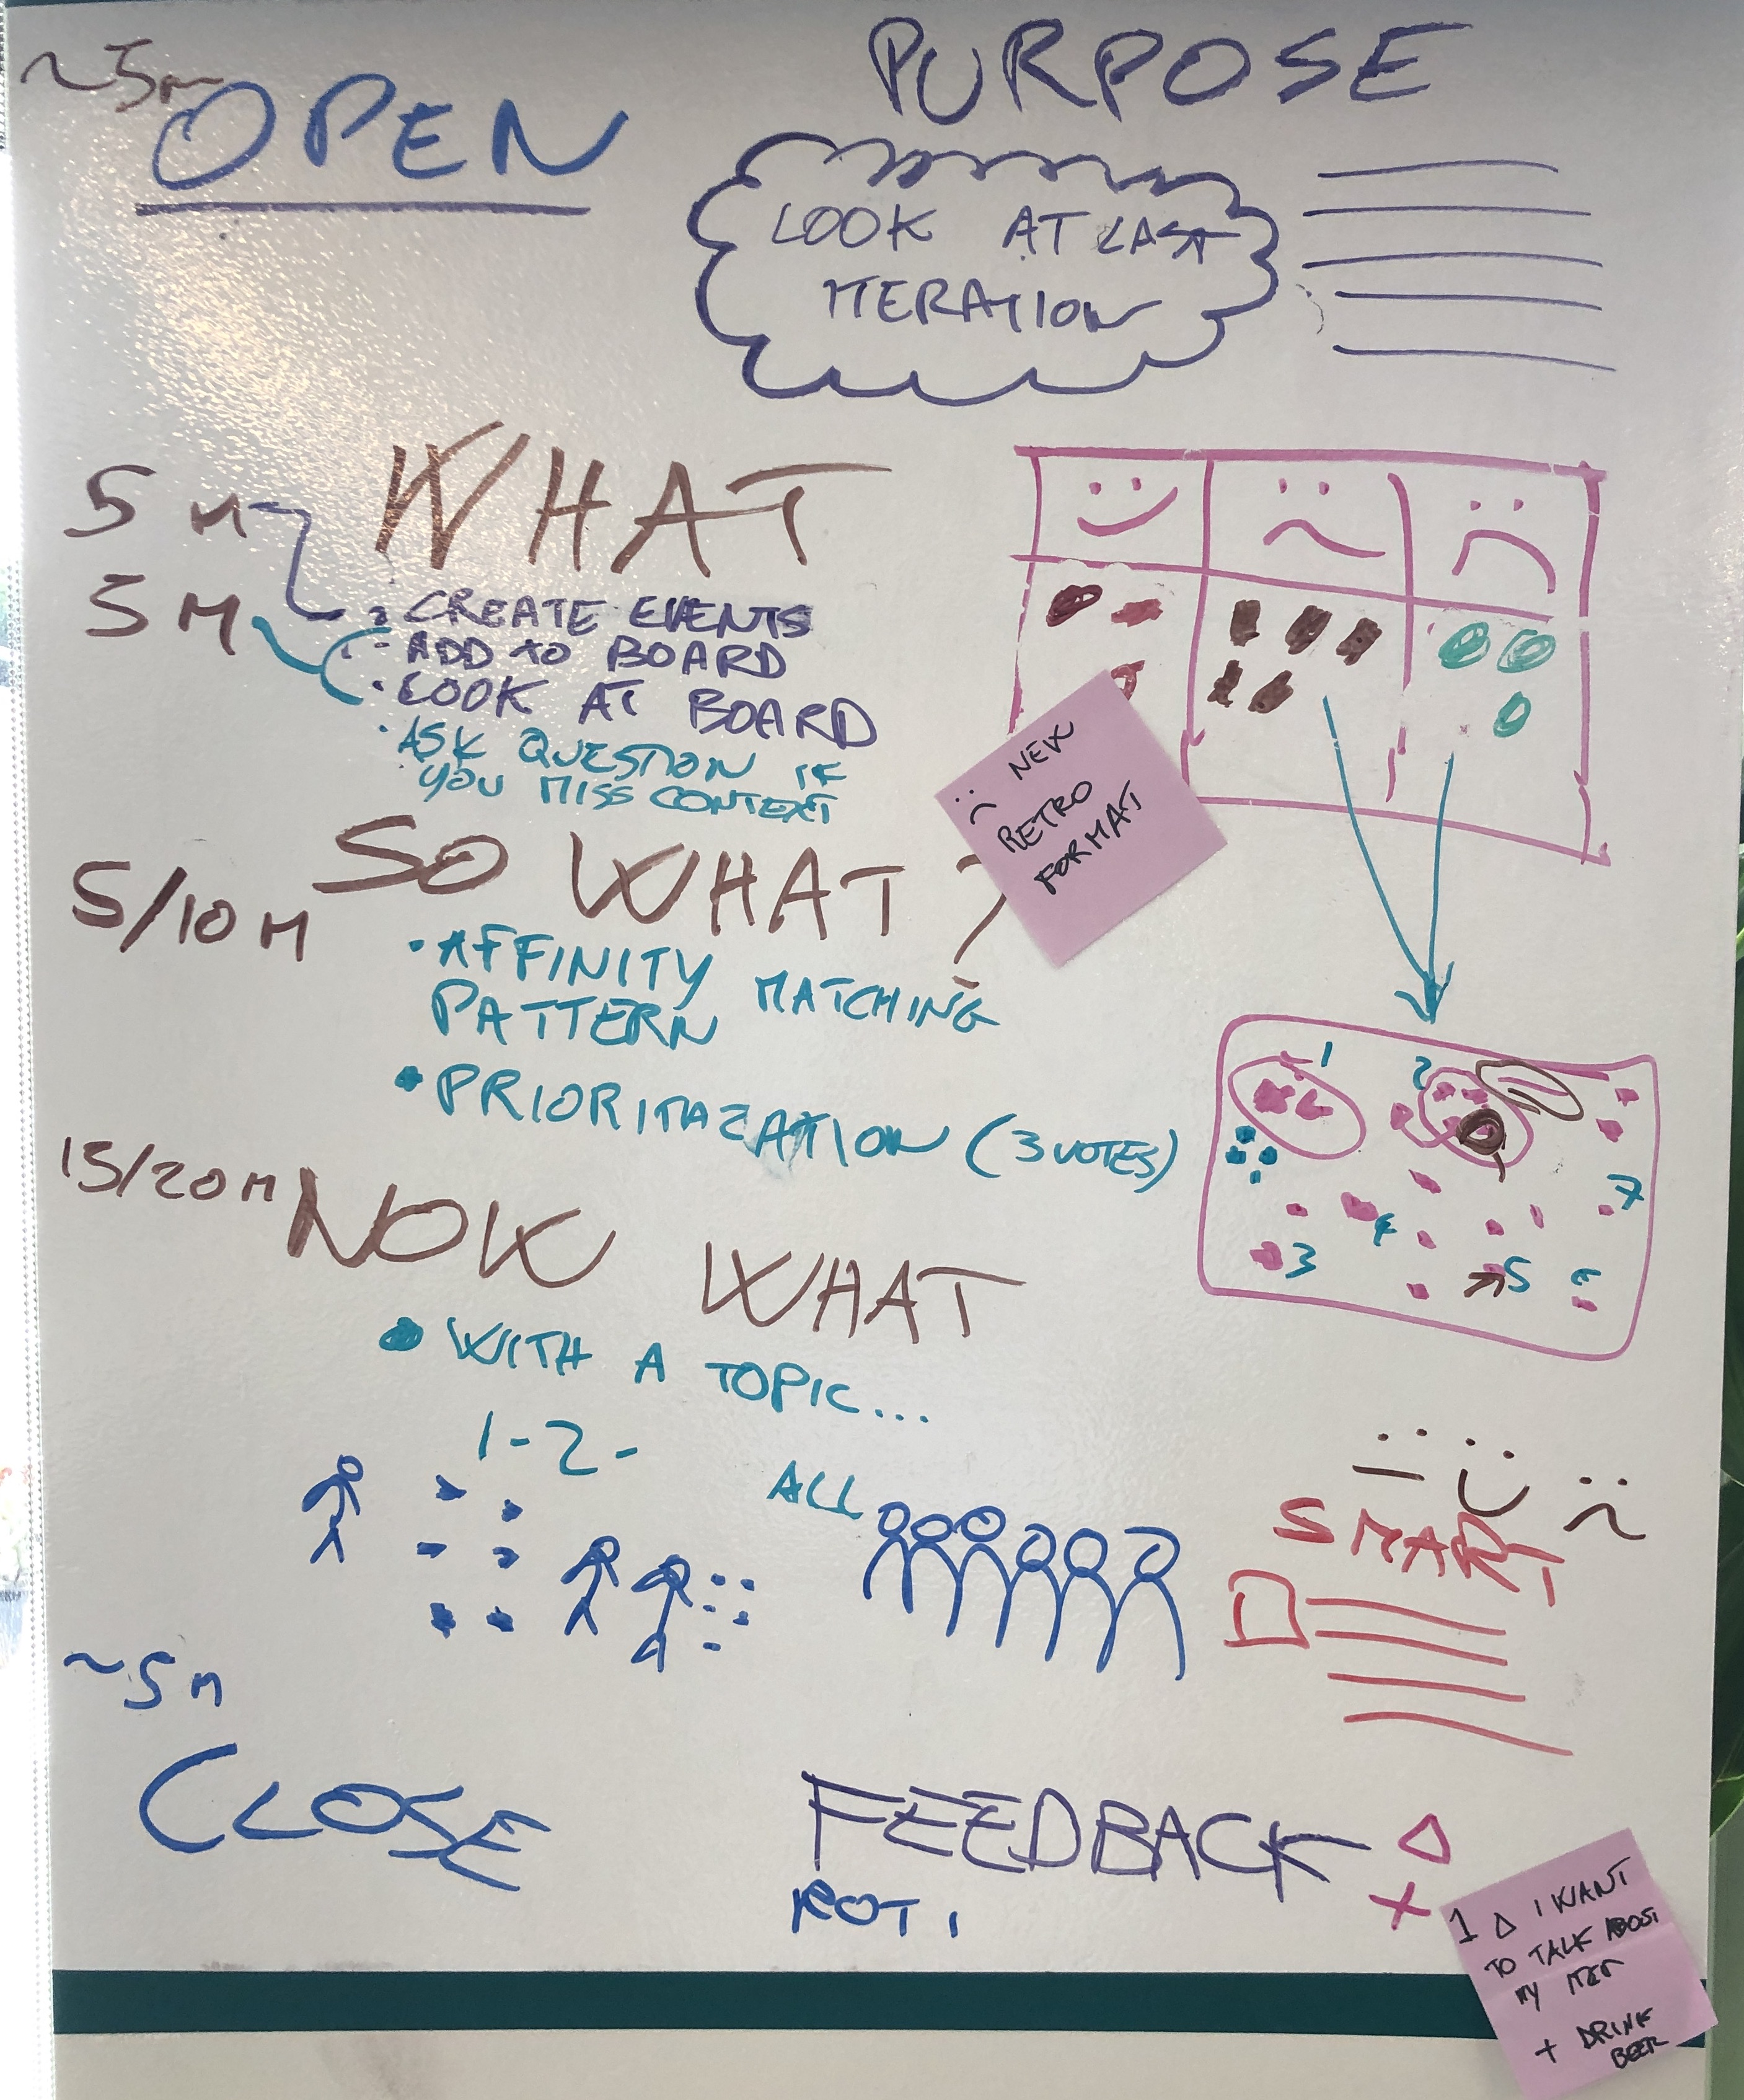 ~5m
OPEN
PURPOSE
LOOK AT LAST
ITERATION
5 M
5 M
WHAT
CREATE EVENTS
- ADD to BOARD
· LOOK AT BOARD
· ASK QUESTION IF
YOU MISS CONTEXT
:( NEW
RETRO
FORMAT
5/10 M
SO WHAT ?
· AFFINITY MATCHING
PATTERN
• PRIORITAZATION (3 VOTES)
1
2
3
4
5
6
7
15/20 M
NOW WHAT
• WITH A TOPIC...
1-2-
ALL
SMART
~5 M
CLOSE
FEEDBACK Δ
+
ROTI
1 Δ I WANT
TO TALK ABOUT
MY ITEM
+ DRINK
BEER